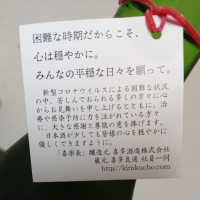 困難な時期だからこそ、
心は穏やかに。
みんなの平穏な日々を願って。
新型コロナウイルスによる困難な状況
の中、苦しんでおられる多くの方々に心
からお見舞いを申し上げるとともに、治
療や感染予防に力を注がれている方々
に、大きな感謝と尊敬の意を捧げます。
日本酒が少しでも皆様の心を穏やかに
優しくできますように。
「喜楽長」醸造元 喜多酒造株式会社
蔵元 喜多良道 社員一同
http://kirakucho.com/